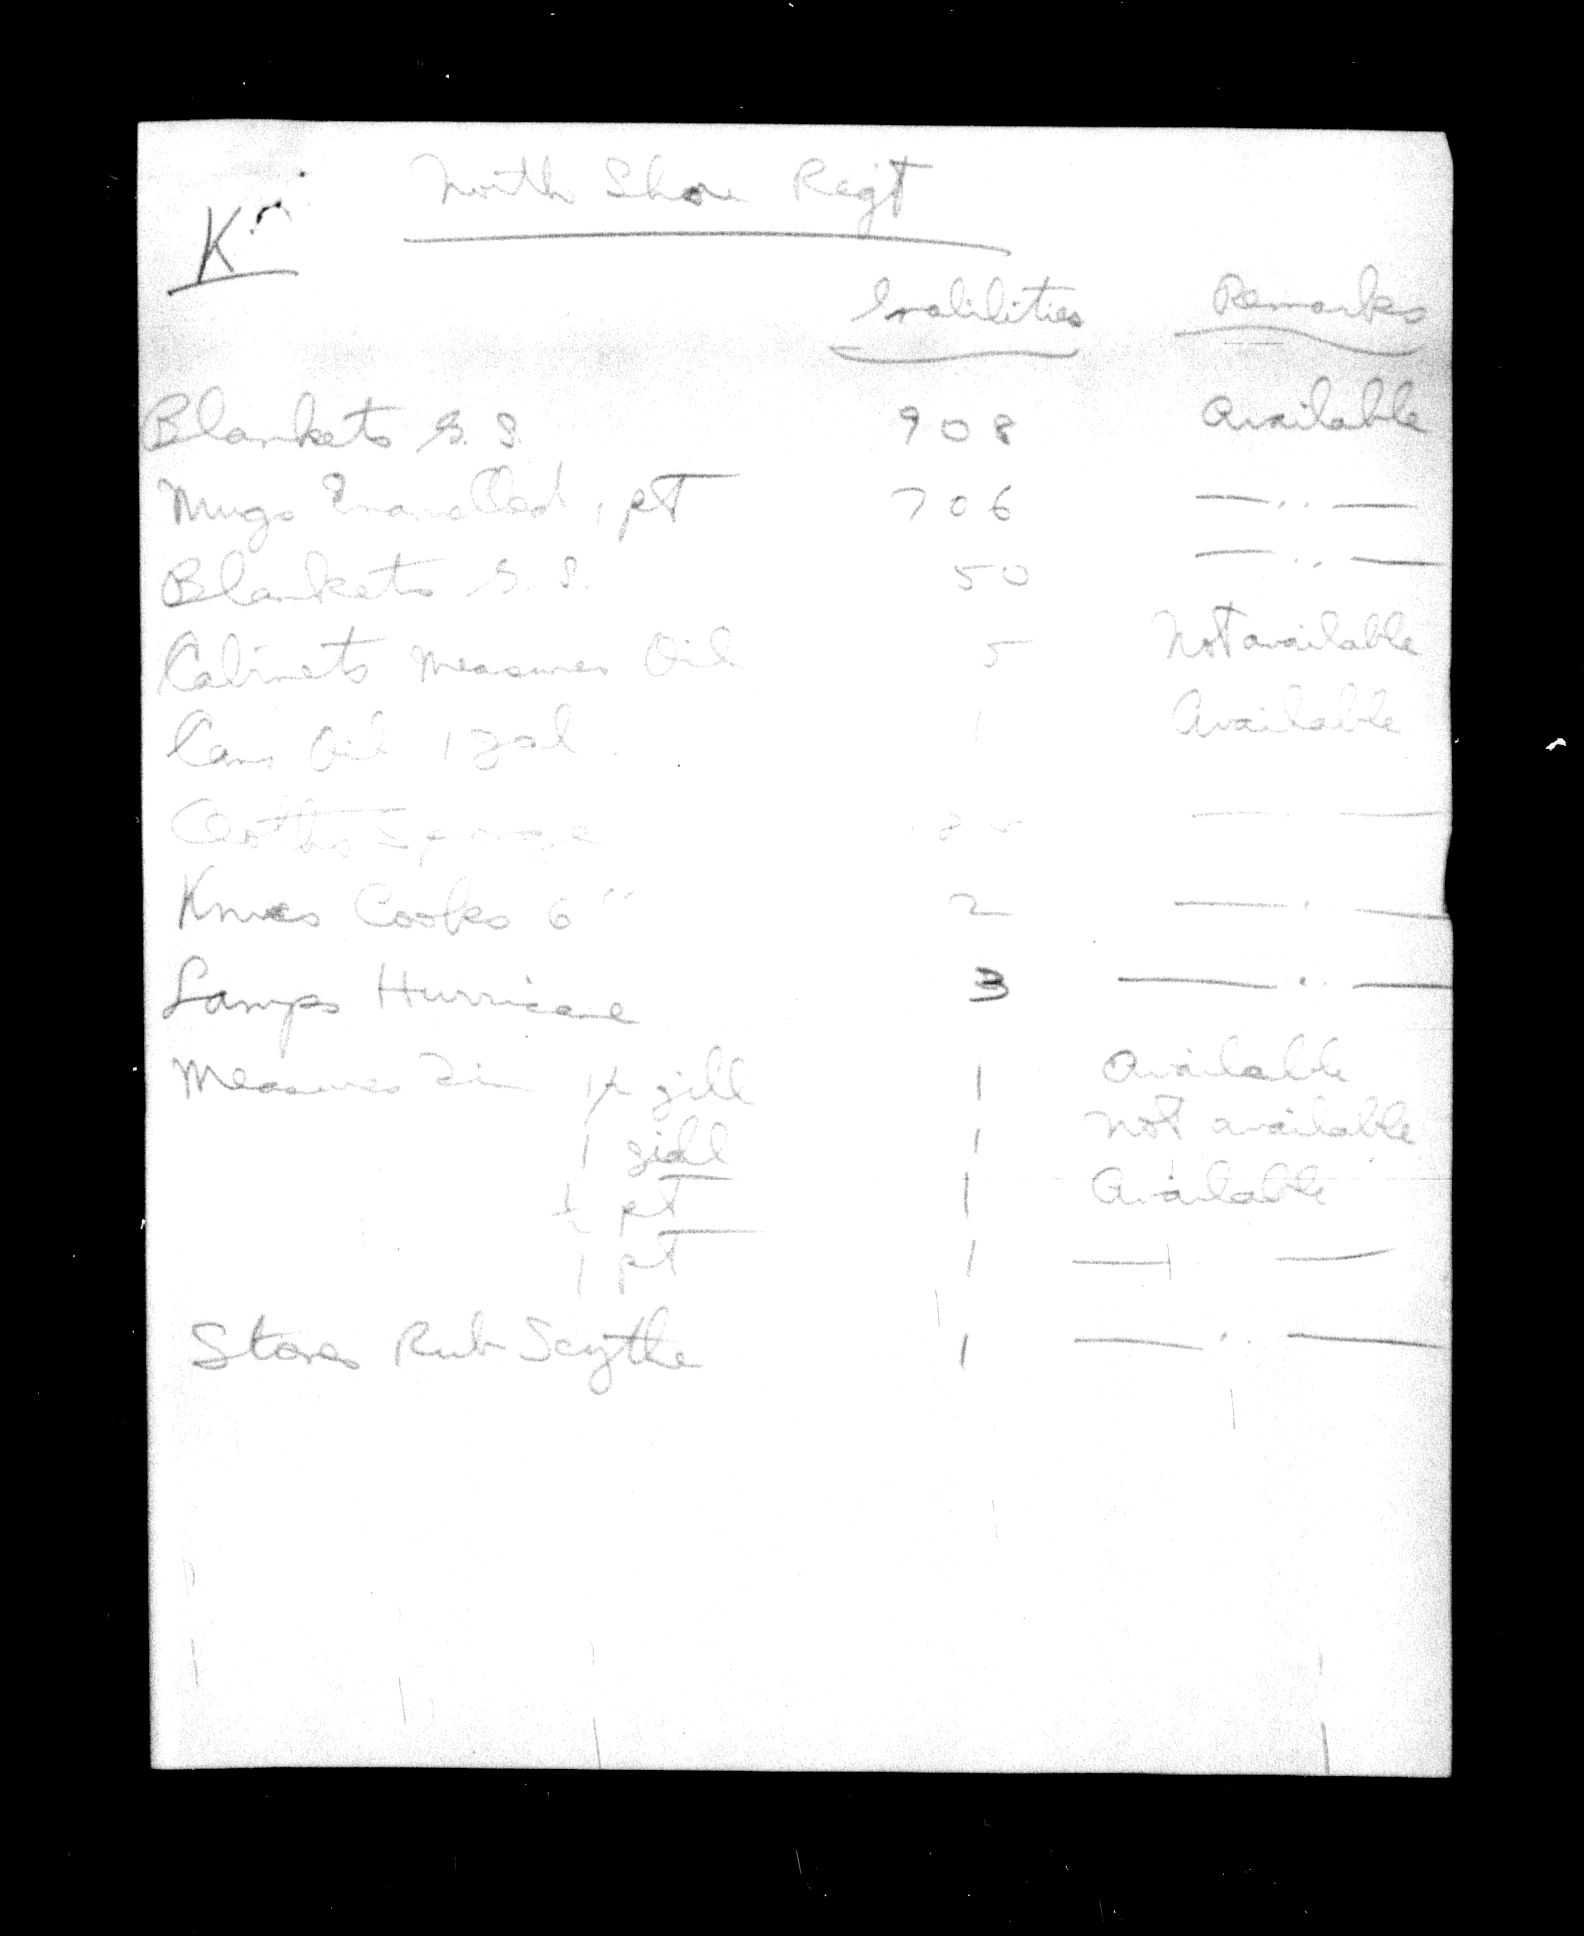 North Shore Regt
K
Inabilities Remarks
Blankets G. S. 908 Available
Mugs Enamelled 1 pt 706 — " —
Blankets G. S. 50 — " —
Cabinets Measures Oil 5 Not available
Cans Oil 1 gal. 1 Available
Cloths Sponge — —
Knives Cooks 6" 2 — " —
Lamps Hurricane 3 — " —
Measures Tin gill 1 Available
1 gill 1 Not available
½ pt 1 Available
1 pt 1 — —
Stones Rub Scythe 1 — " —